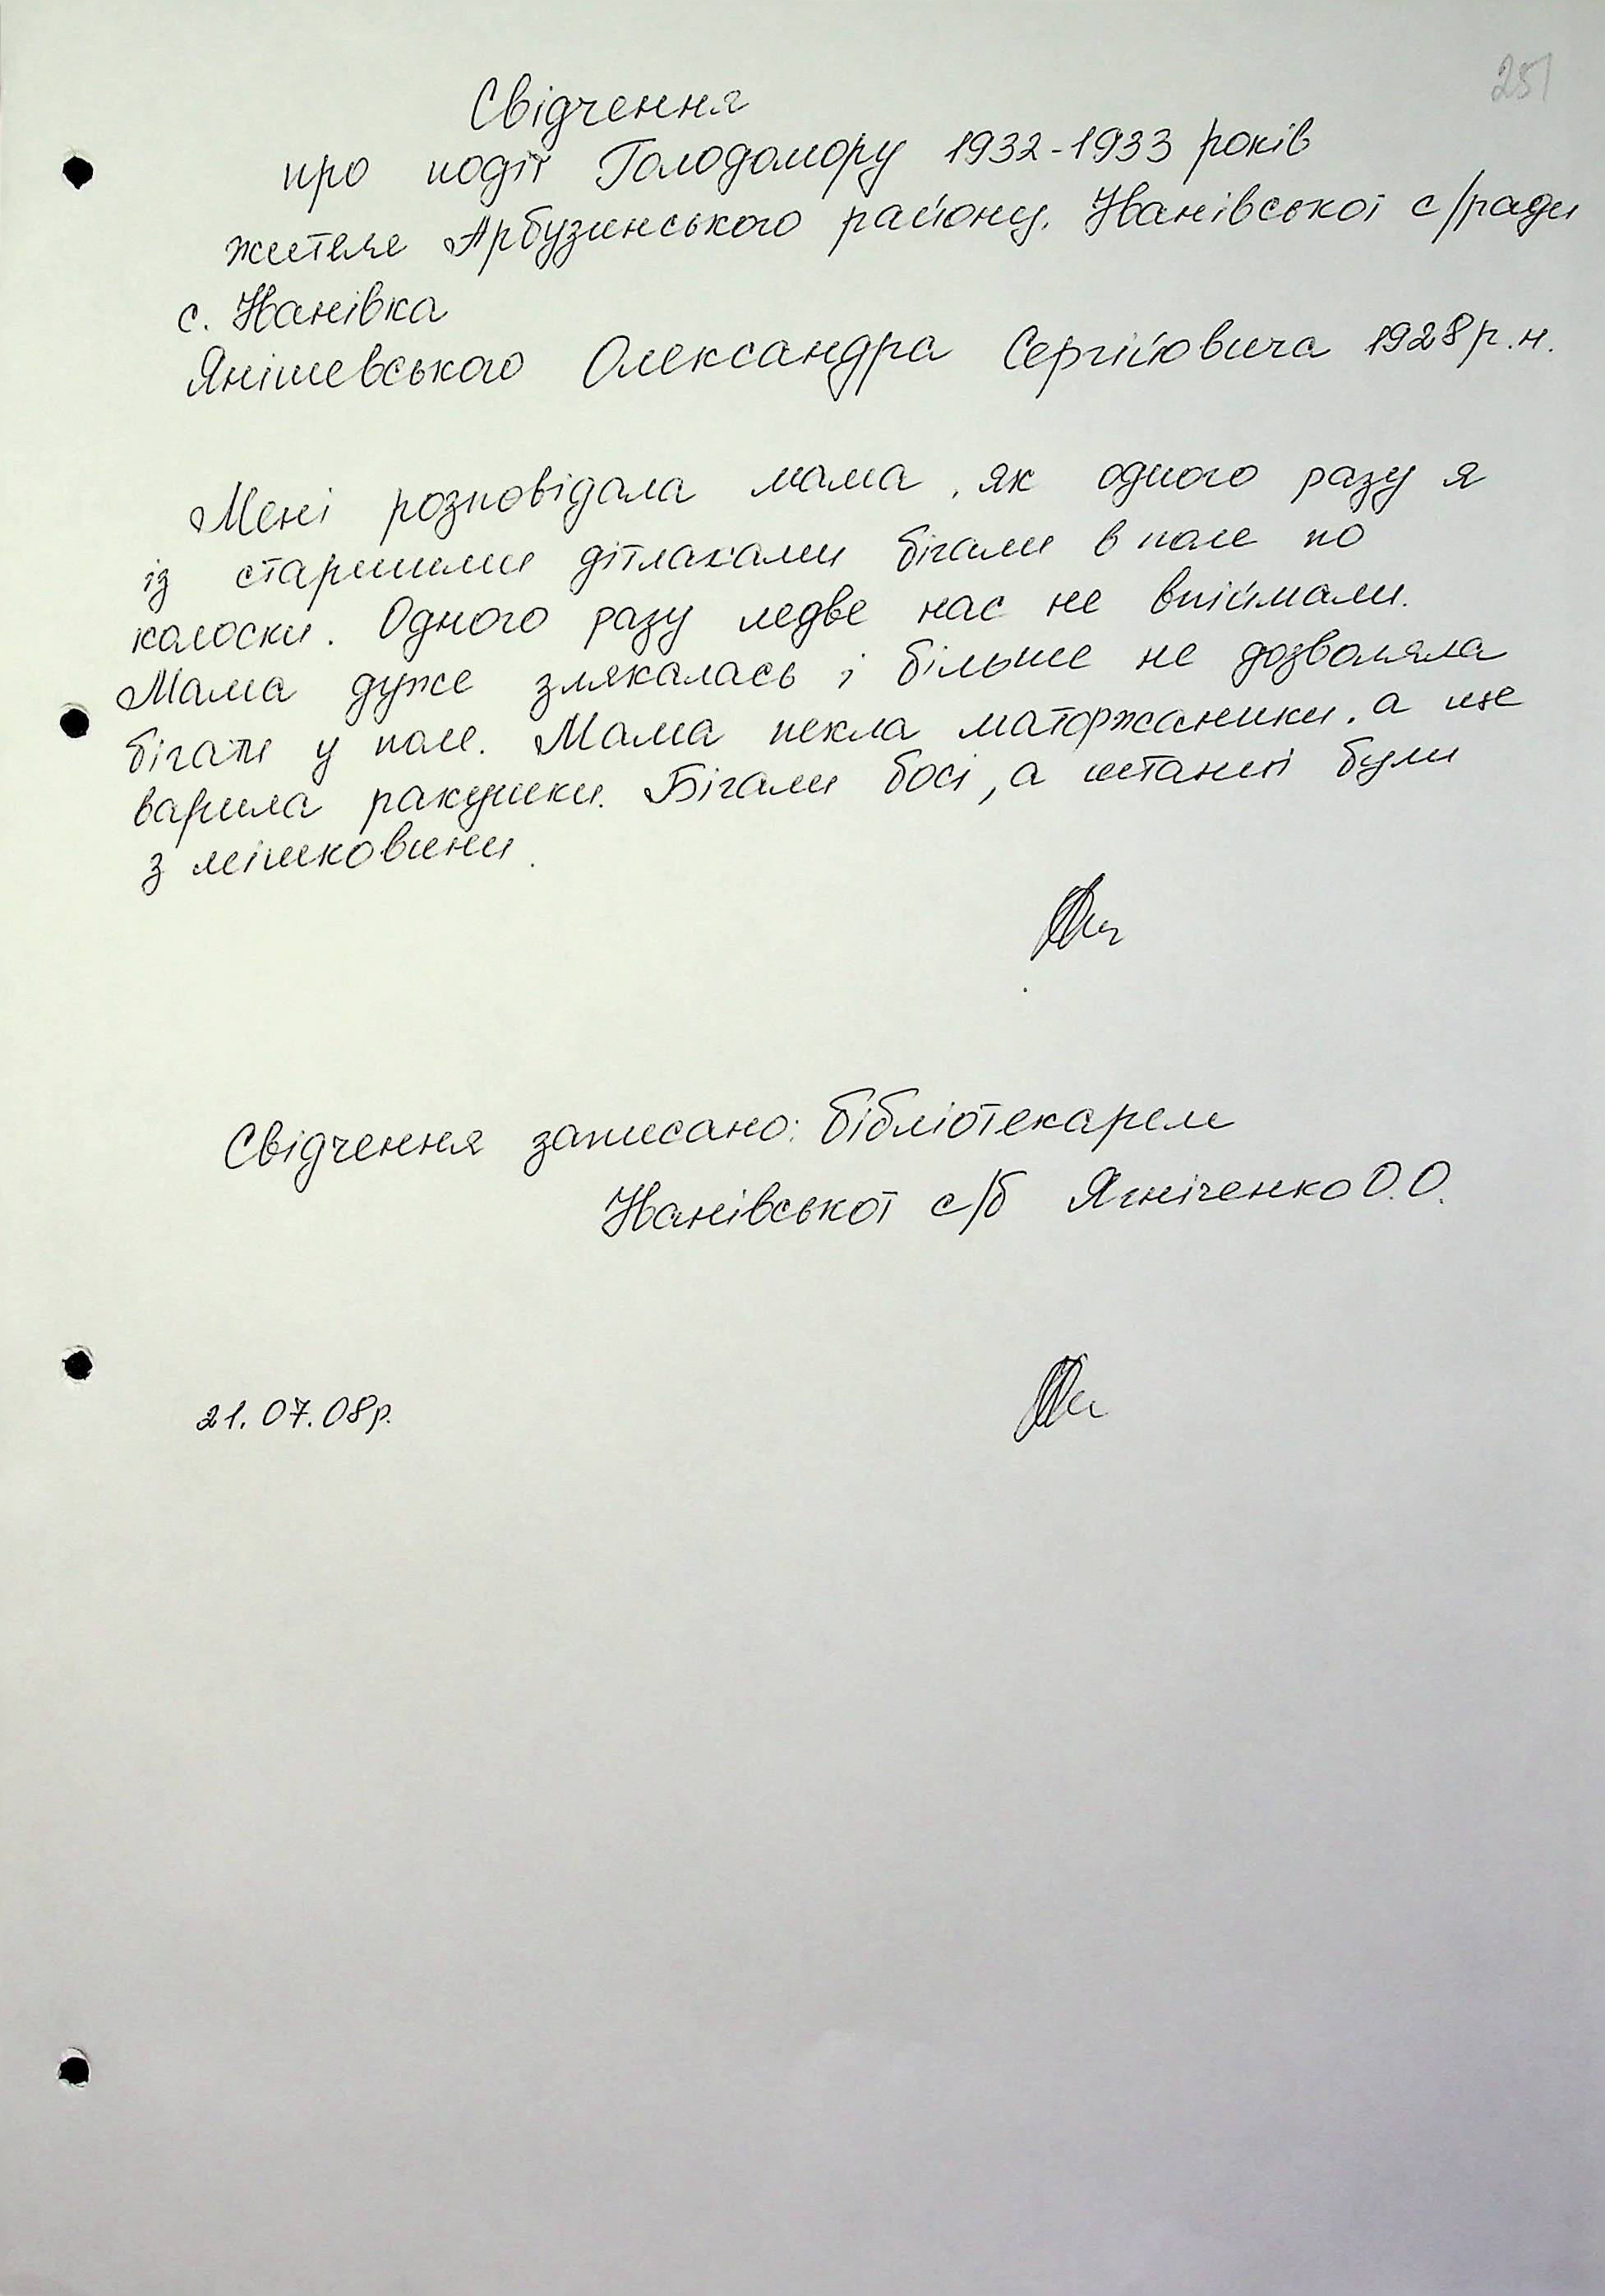 251
Свідчення
про події Голодомору 1932-1933 років
жителя Арбузинського району. Іванівської с/ради
с. Іванівка
Янішевського Олександра Сергійовича 1928 р.н.
Мені розповідала мама, як одного разу я
із старшими дітлахами бігали в поле по
колоски. Одного разу ледве нас не впіймали.
Мама дуже злякалась і більше не дозволяла
бігати у поле. Мама пекла маторжаники, а ще
варила ракушки. Бігали босі, а штанці були
з мішковини.
Свідчення записано: бібліотекарем
Іванівської с/б Ягніченко О.О.
21.07.08р.